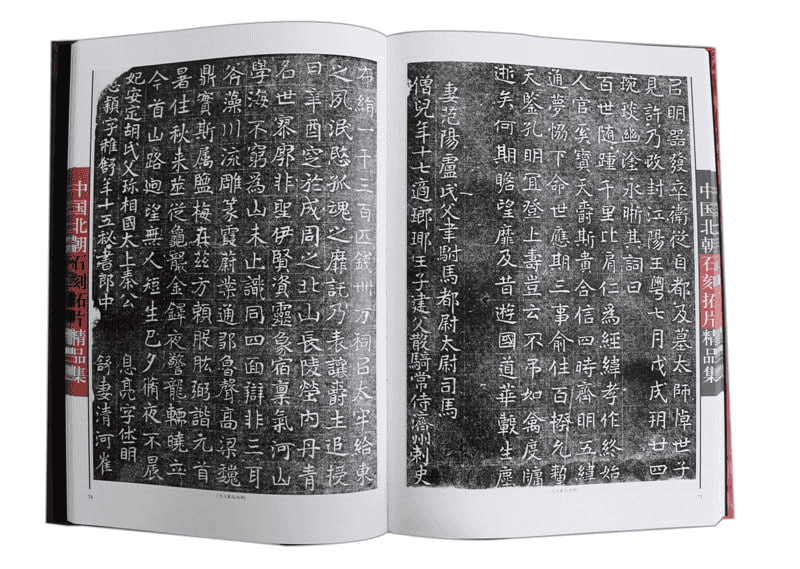 中国北朝石刻拓片精品集
布絹一千三百匹錢卅万祠㠯太牢給東
之夙泯愍孤魂之靡託乃表讓爵生追授
曰辛酉窆於成周之北山長陵塋内丹青
名世寡廓非聖伊賢資靈象宿稟氣河山
學海不窮為山未止識同四面辯非三耳
谷藻川流雕篆霞蔚業通鄒魯聲高梁魏
鼎實斯属鹽梅在兹方賴股肱弼諧元首
暑往秋来筮從龜襲金鐸夜警龍輴曉立
今首山路逈望無人短生已夕脩夜不晨
妃安定胡氏父珎相國太上秦公 息亮字休明
息穎字稚舒年十五秘書郎中 舒妻清河崔
74
㠯明器發卒衛從自都及墓太師悼世子
見許乃改封江陽王粤七月戊戌玥廿四
琬琰幽塗永晣其詞曰
百世随踵千里比肩仁為經緯孝作終始
人官矣寶天爵斯貴合信四時齊明五緯
通夢恊下命世應期三事俞往百揆允
天鑒孔明冝登上壽豈云不吊如禽度牖
逝矣何期瞻望靡及昔遊國道華轂生塵
妻范陽盧氏父聿駙馬都尉太尉司馬
僧兒年十七適瑯琊王子建父散騎常侍濟州刺史
中国北朝石刻拓片精品集
75